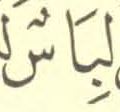 لِبَاسٌ